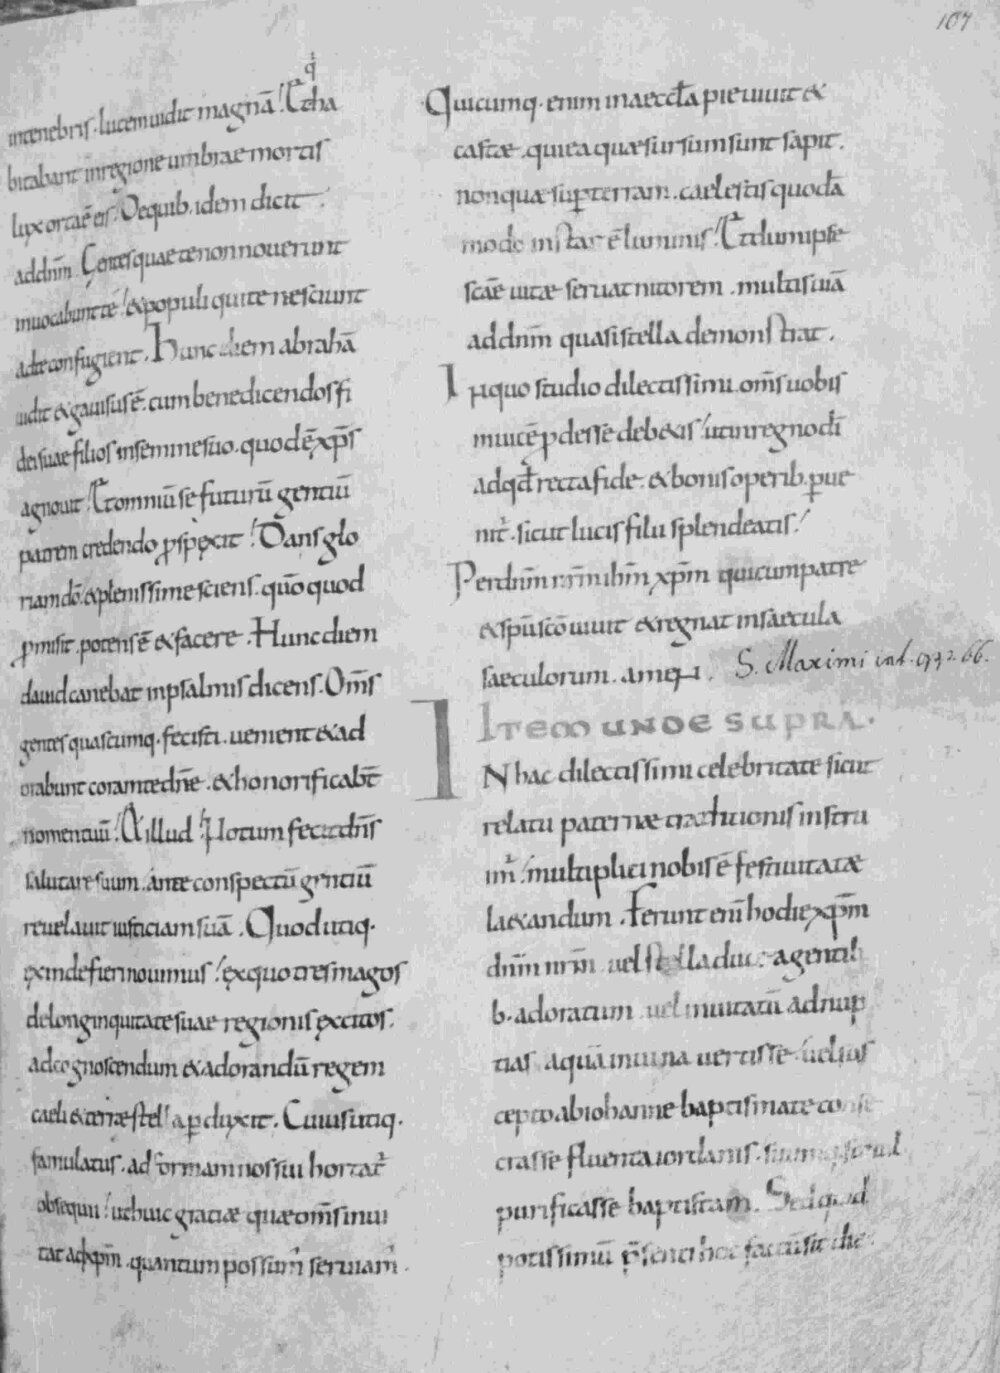 107
qı
intenebris. lucem uidit magnā. Et ha
bitabant in regione umbrae mortis
lux orta ē eis. De quib. idem dicit.
ad dnm̄. Gentes quae te non nouerunt
inuocabunt te. & populi qui te nesciunt
ad te confugient. Hunc diem abrahā
uidit & gauisus ē. cum benedicendos fi
dei suae filios in semine suo. quod ē xp̄s
agnouit. Et omniū se futurū gentiū
patrem credendo prospexit. Dans glo
riam dō. & plenissime sciens. qūo quod
promisit. potens ē & facere. Hunc diem
dauid canebat in psalmis dicens. Om̄s
gentes quascumq. fecisti. uenient & ad
orabunt coram te dn̄e. & honorificabt̄
nomen tuū. Et illud. Notum fecit dn̄s
salutare suum. ante conspectū gentiū
reuelauit iusticiam suā. Quod utiq.
exinde fieri nouimus. ex quo tres magos
de longinquitate suae regionis excitos.
ad cognoscendum & adorandū regem
caeli & terrae stella perduxit. Cuius utiq.
famulatus. ad formam nos sui hortat̄
obsequii. ut huic gratiae quae om̄s inui
tat ad xp̄m. quantum possum̄ seruiam̄.
Quicumq. enim in aeccl̄a pie uiuit &
castae. qui ea quae sursum sunt sapit.
non quae sup̄ terram. caelestis quodā
modo instar ē luminis. Et dum ipse
scāe uitae seruat nitorem. multis uiā
ad dnm̄ quasi stella demonstrat.
In quo studio dilectissimi. om̄s uobis
inuicē prodesse debetis. ut in regno dī
ad qd̄ recta fide. & bonis operib. p̄ue
nit̄. sicut lucis filii splendeatis.
Per dnm̄ nr̄m ihm̄ xp̄m qui cum patre
& sp̄u scō uiuit & regnat in saecula
saeculorum. amen.
S. Maximi int. 66.
ITEM UNDE SUPRA.
IN hac dilectissimi celebritate sicut
relatu paternae traditionis instru
im̄. multiplici nobis ē festiuitatae
laetandum. Ferunt enī hodie xp̄m
dnm̄ nr̄m. uel stella duce a gentili
b. adoratum. uel inuitatū ad nup
tias aquā in uina uertisse. uel sus
cepto ab iohanne baptismate conse
crasse fluenta iordanis. suumq. simul
purificasse baptistam. Sed quod
potissimū p̄senti hoc factū sit die.